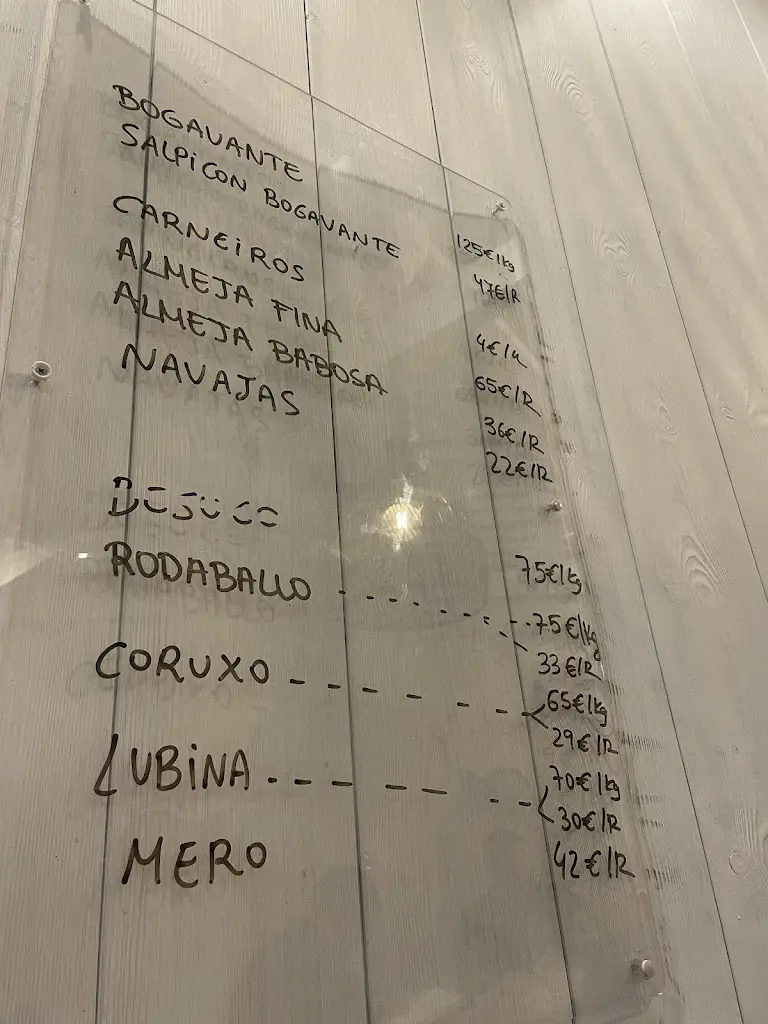 BOGAVANTE 125€/kg
SALPICON BOGAVANTE 47€/R
CARNEIROS 4€/u
ALMEJA FINA 65€/R
ALMEJA BABOSA 36€/R
NAVAJAS 22€/R
BESUGO 75€/kg
RODABALLO 75€/kg
33€/R
CORUXO 65€/kg
29€/R
LUBINA 70€/kg
30€/R
MERO 42€/R